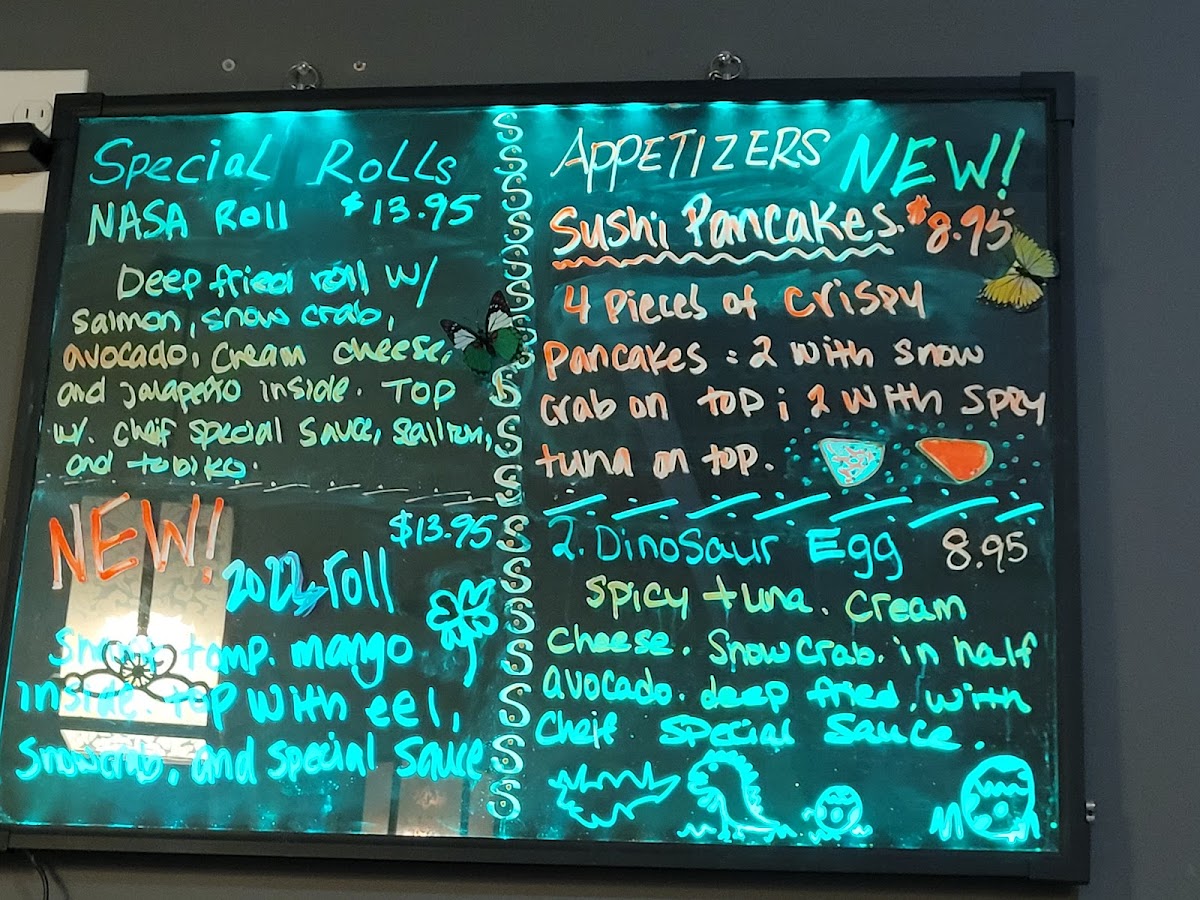 Special Rolls
NASA Roll $13.95
Deep fried roll w/
salmon, snow crab,
avocado, cream cheese,
and jalapeño inside. TOP
w/. cheif special sauce, Sallion,
and tobiko.
NEW!
$13.95
2022 roll
temp. mango
inside. top with eel,
snowcrab, and special sauce
APPETIZERS NEW!
Sushi Pancakes. $8.95
4 pieces of crispy
pancakes: 2 with snow
crab on top; 2 with spicy
tuna on top.
2. Dinosaur Egg 8.95
spicy tuna. cream
cheese. Snowcrab. in half
avocado. deep fried. with
cheif special sauce.